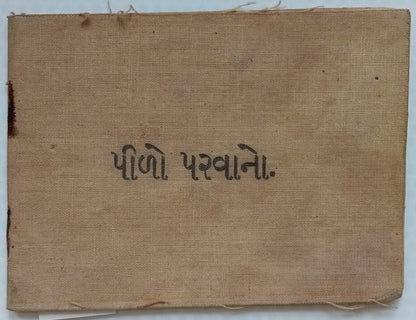 પીળો પરવાનો.